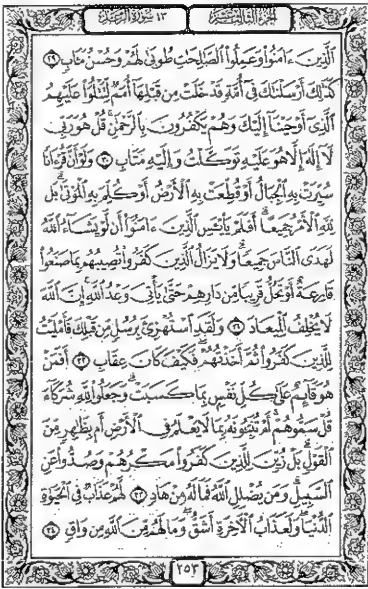 الجزء الثالث عشر ١٣ سورة الرعد
ٱلَّذِينَ ءَامَنُوا۟ وَعَمِلُوا۟ ٱلصَّٰلِحَٰتِ طُوبَىٰ لَهُمْ وَحُسْنُ مَـَٔابٍ ٢٩
كَذَٰلِكَ أَرْسَلْنَٰكَ فِىٓ أُمَّةٍ قَدْ خَلَتْ مِن قَبْلِهَآ أُمَمٌ لِّتَتْلُوَا۟ عَلَيْهِمُ
ٱلَّذِىٓ أَوْحَيْنَآ إِلَيْكَ وَهُمْ يَكْفُرُونَ بِٱلرَّحْمَٰنِ ۚ قُلْ هُوَ رَبِّى
لَآ إِلَٰهَ إِلَّا هُوَ عَلَيْهِ تَوَكَّلْتُ وَإِلَيْهِ مَتَابِ ٣٠ وَلَوْ أَنَّ قُرْءَانًا
سُيِّرَتْ بِهِ ٱلْجِبَالُ أَوْ قُطِّعَتْ بِهِ ٱلْأَرْضُ أَوْ كُلِّمَ بِهِ ٱلْمَوْتَىٰ ۗ بَل
لِّلَّهِ ٱلْأَمْرُ جَمِيعًا ۗ أَفَلَمْ يَا۟يْـَٔسِ ٱلَّذِينَ ءَامَنُوٓا۟ أَن لَّوْ يَشَآءُ ٱللَّهُ
لَهَدَى ٱلنَّاسَ جَمِيعًا ۗ وَلَا يَزَالُ ٱلَّذِينَ كَفَرُوا۟ تُصِيبُهُم بِمَا صَنَعُوا۟
قَارِعَةٌ أَوْ تَحُلُّ قَرِيبًا مِّن دَارِهِمْ حَتَّىٰ يَأْتِىَ وَعْدُ ٱللَّهِ ۚ إِنَّ ٱللَّهَ
لَا يُخْلِفُ ٱلْمِيعَادَ ٣١ وَلَقَدِ ٱسْتُهْزِئَ بِرُسُلٍ مِّن قَبْلِكَ فَأَمْلَيْتُ
لِلَّذِينَ كَفَرُوا۟ ثُمَّ أَخَذْتُهُمْ ۖ فَكَيْفَ كَانَ عِقَابِ ٣٢ أَفَمَنْ
هُوَ قَآئِمٌ عَلَىٰ كُلِّ نَفْسٍۭ بِمَا كَسَبَتْ ۗ وَجَعَلُوا۟ لِلَّهِ شُرَكَآءَ
قُلْ سَمُّوهُمْ ۚ أَمْ تُنَبِّـُٔونَهُۥ بِمَا لَا يَعْلَمُ فِى ٱلْأَرْضِ أَم بِظَٰهِرٍ مِّنَ
ٱلْقَوْلِ ۗ بَلْ زُيِّنَ لِلَّذِينَ كَفَرُوا۟ مَكْرُهُمْ وَصُدُّوا۟ عَنِ
ٱلسَّبِيلِ ۗ وَمَن يُضْلِلِ ٱللَّهُ فَمَا لَهُۥ مِنْ هَادٍ ٣٣ لَّهُمْ عَذَابٌ فِى ٱلْحَيَوٰةِ
ٱلدُّنْيَا ۖ وَلَعَذَابُ ٱلْءَاخِرَةِ أَشَقُّ ۖ وَمَا لَهُم مِّنَ ٱللَّهِ مِن وَاقٍ ٣٤
٢٥٣